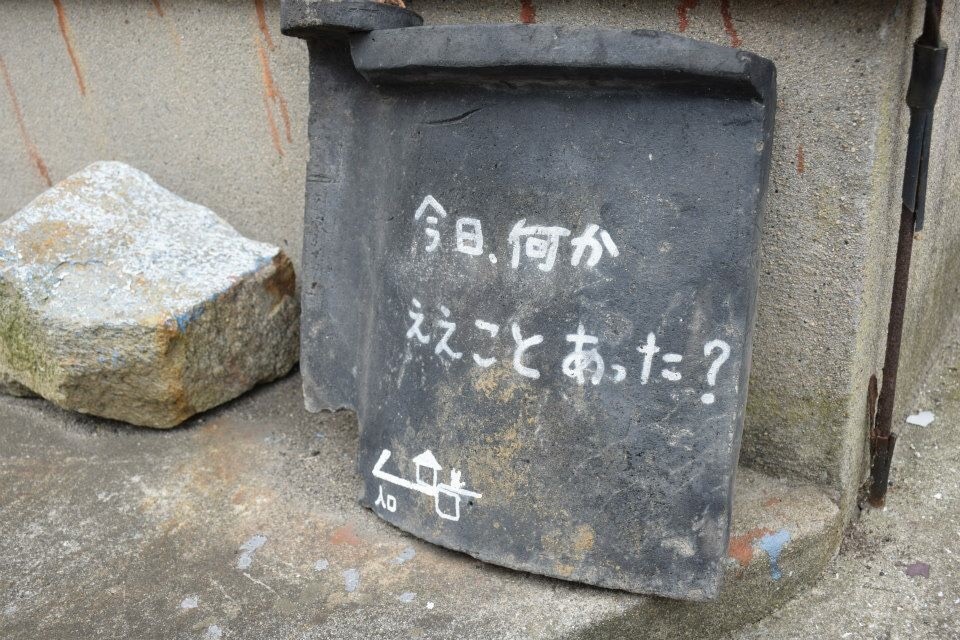 今日、何か
ええことあった?